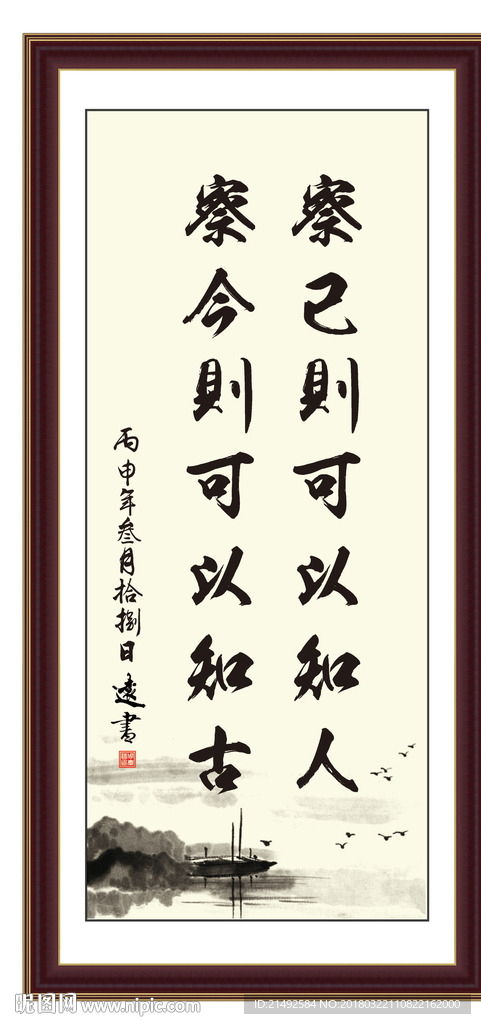 察己則可以知人
察今則可以知古
丙申年叁月拾捌日 遠書
昵图网 www.nipic.com
ID:21492584 NO:20180322110822162000